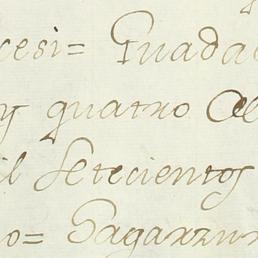 cesi= Guada
y quatro
il Setecientos
o= Gagarzur